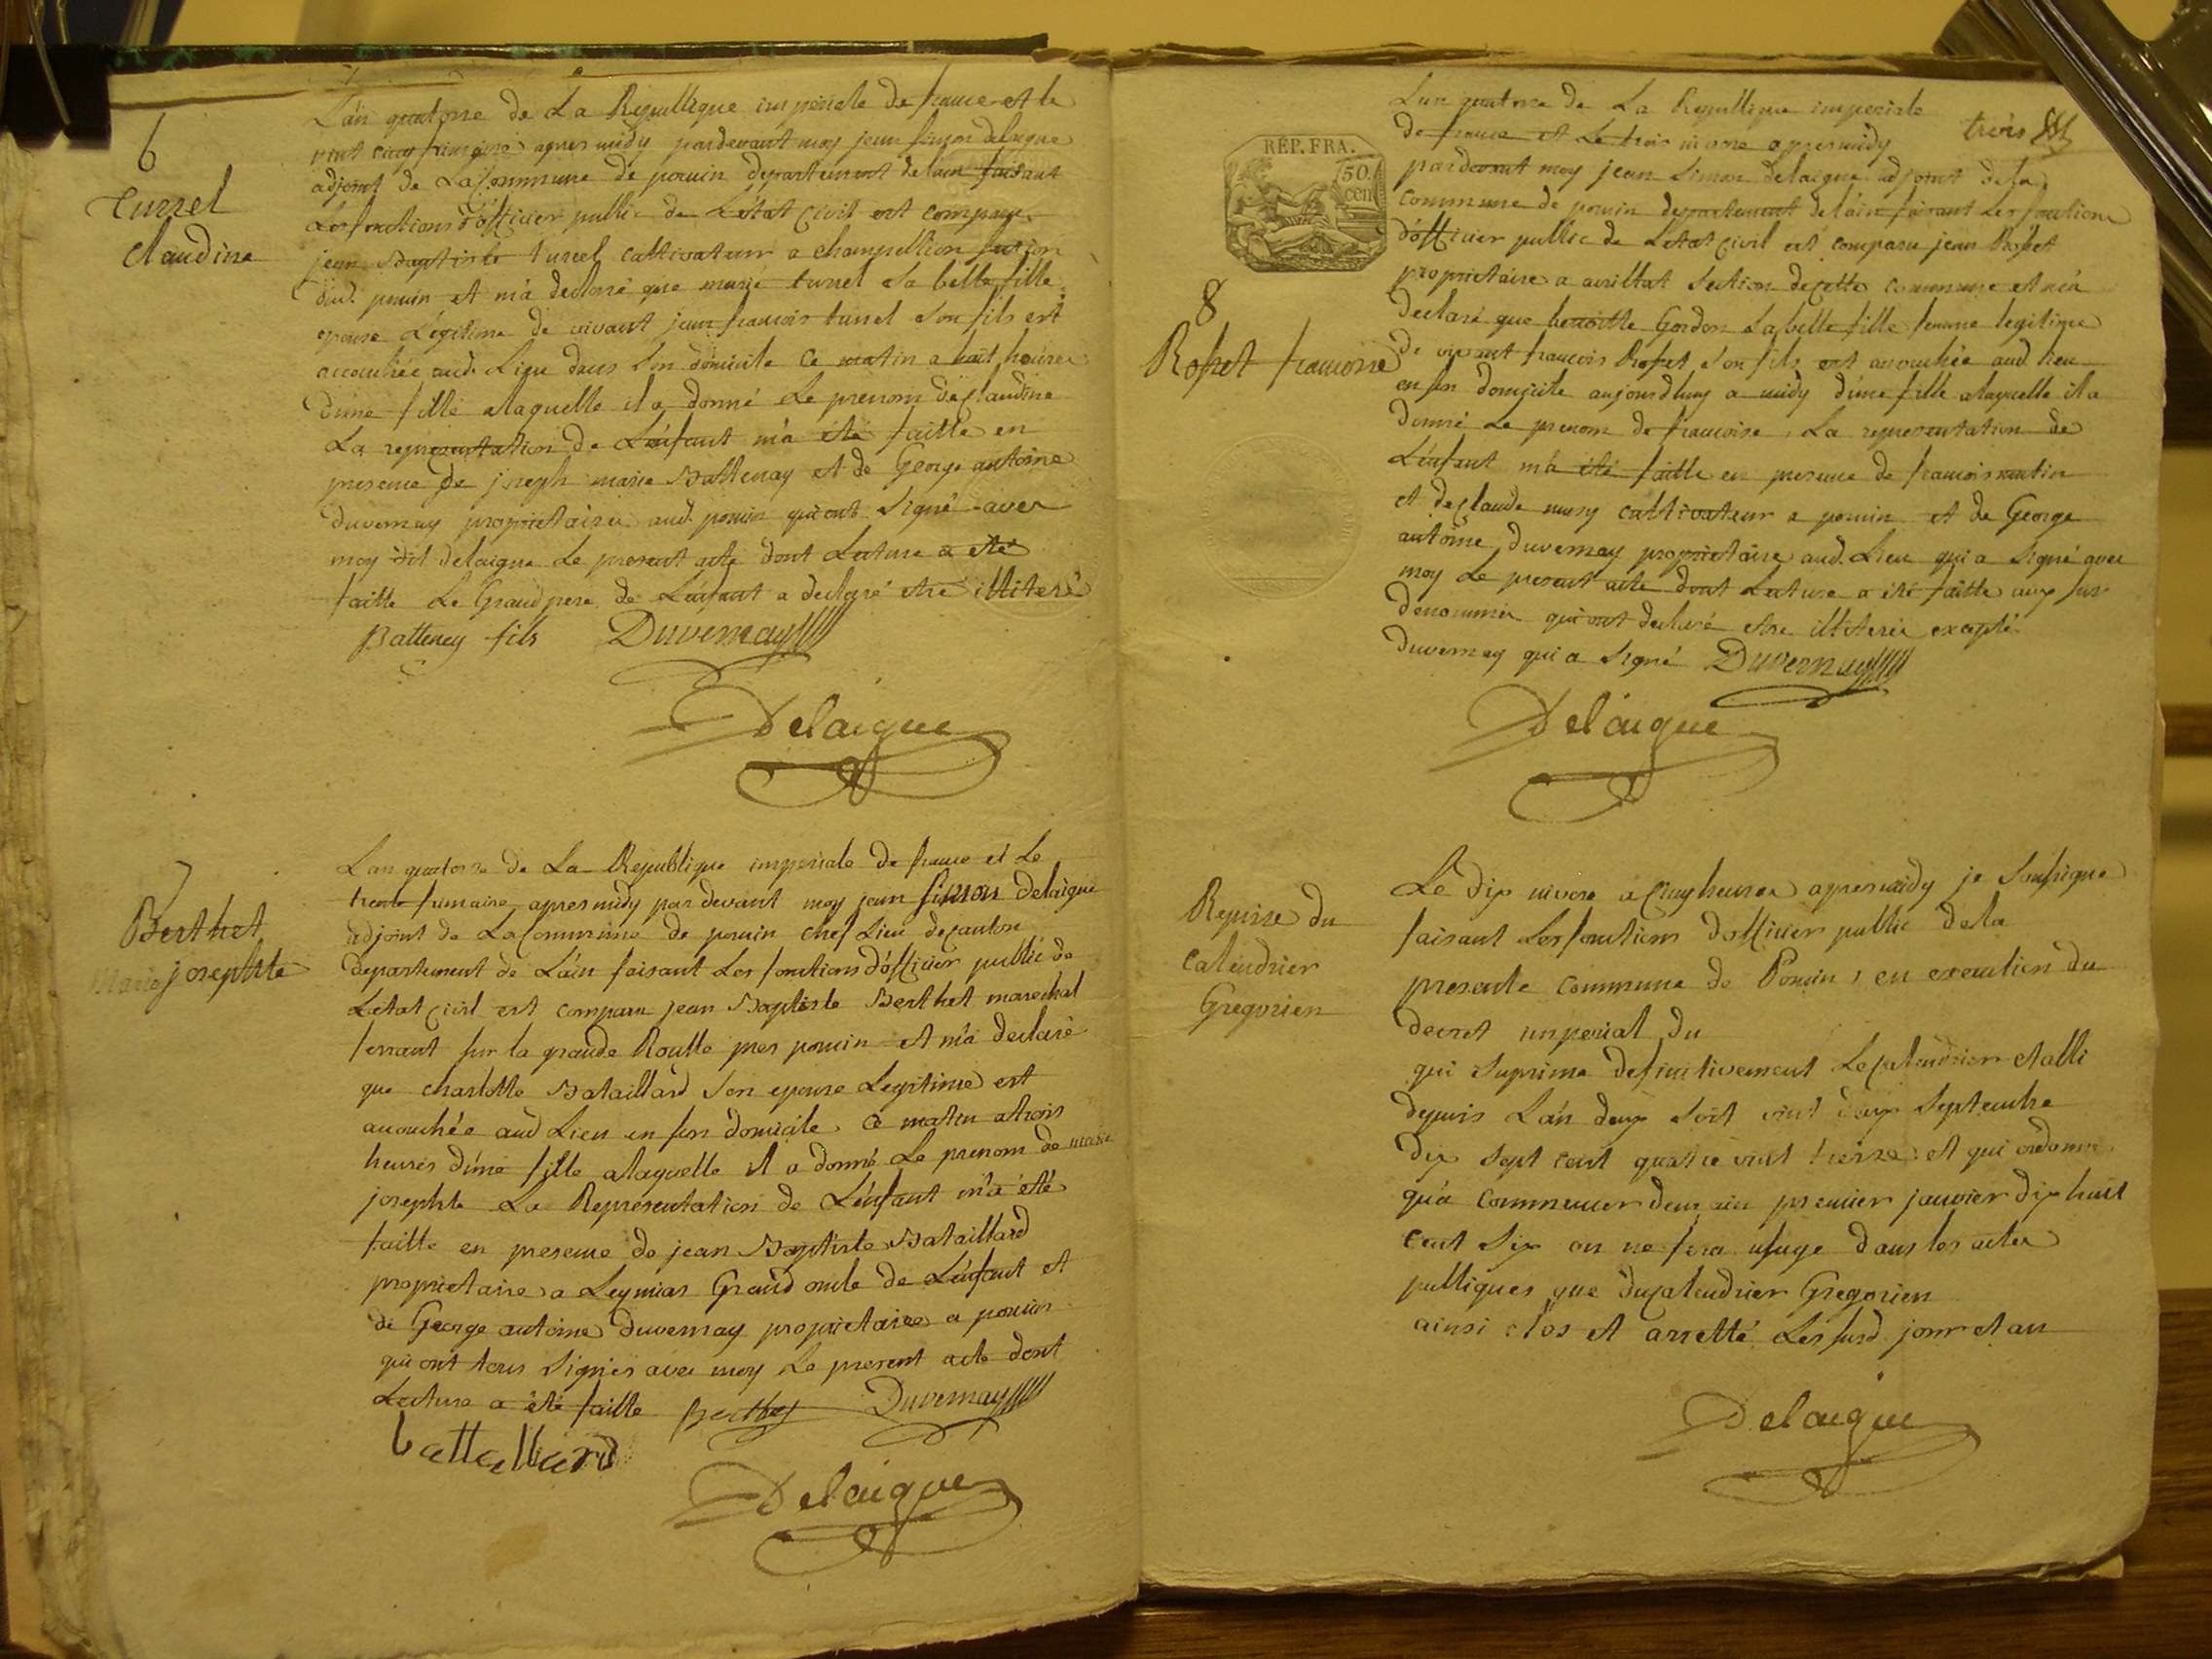 6
Turrel
Claudine
L'an quatorse de La Republique imperiale de france et le
vint cinq frimaire apres midy pardevant moy jean simon delaigue
adjoint de La Commune de poncin departement de lain faisant
Les fonctions d'officier public de L'etat Civil est comparu
jean Baptiste turrel cultivateur a champeillion section
dud. poncin et m'a declaré que marie turrel sa belle fille
epouse Légitime de vivant jean francois turrel son fils est
accouchée aud. Lieu dans son domicile ce matin a huit heures
d'une fille alaquelle il a donné Le prenom de claudine
La representation de L'enfant m'a été faitte en
presence de joseph marie Batteney et de George antoine
duvernay proprietaires aud. poncin qui ont signé avec
moy dit delaigue Le present acte dont Lecture a été
faitte Le Grand pere de L'enfant a declaré etre illiteré
Batteney fils Duvernay
Delaigue
7
Berthet
Marie josephte
L'an quatorse de La Republique imperiale de france et Le
trente frimaire apres midy par devant moy jean simon Delaigue
adjoint de La Commune de poncin chef Lieu de canton
departement de L'ain faisant Les fonctions d'officier public de
L'etat civil est comparu jean Baptiste Berthet marechal
ferrant sur la grande Routte pres poncin et m'a declaré
que charlotte Bataillard son epouse Legitime est
accouchée aud Lieu en son domicile ce matin a trois
heures d'une fille alaquelle il a donné Le prenom de marie
josephte La Representation de L'enfant m'a été
faitte en presence de jean Baptiste Bataillard
proprietaire a Leymiat Grand oncle de L'enfant et
de George antoine duvernay proprietaire a poncin
qui ont tous signés avec moy Le present acte dont
Lecture a été faitte Berthet Duvernay
battaillard
Delaigue
trois
RÉP. FRA.
50.
cen
8
Rosset francoise
L'an quatorse de La Republique imperiale
de france et Le trois nivose apresmidy
pardevant moy jean simon delaigue adjoint de la
commune de poncin departement de l'ain faisant Les fonctions
d'officier public de L'etat civil est comparu jean Rosset
proprietaire a avrillat section de cette commune et m'a
declaré que benoitte Gordon sa belle fille femme legitime
de vivant francois Rosset son fils est accouchée aud. lieu
en son domicile aujourdhuy a midy d'une fille alaquelle il a
donné Le prenom de francoise, La representation de
L'enfant m'a été faitte en presence de francois
et de claude cultivateur a poncin et de George
antoine duvernay proprietaire aud. Lieu qui a signé avec
moy Le present acte dont Lecture a été faitte aux sus
denommés qui ont declaré etre illiterés excepté
duvernay qui a signé Duvernay
Delaigue
Reprise du
Calendrier
Gregorien
Le dix nivose a cinq heures apresmidy je soussigné
faisant Les fonctions d'officier public de la
presente Commune de Poncin, en execution du
decret imperial du
qui suprime definitivement Le calendrier etabli
depuis L'an deux soit vint deux septembre
dix sept cent quatre vint treise et qui ordonne
qu'a commencer demain premier janvier dix huit
cent six on ne fera usage dans les actes
publiques que du calendrier Gregorien
ainsi clos et arretté Les susd. jour et an
Delaigue